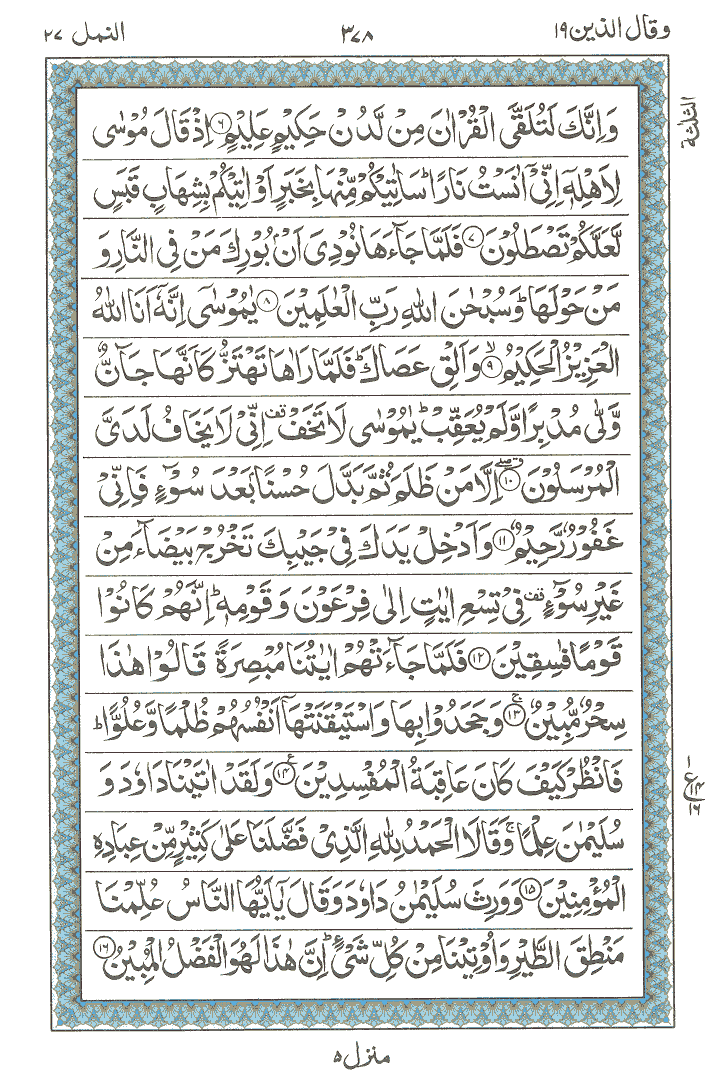 وقال الذين ١٩
٣٧٨
النمل ٢٧
الثلثة
وَاِنَّكَ لَتُلَقَّى الْقُرْاٰنَ مِنْ لَّدُنْ حَكِيْمٍ عَلِيْمٍ ۶ اِذْ قَالَ مُوْسٰى
لِاَهْلِهٖۤ اِنِّىْۤ اٰنَسْتُ نَارًا ؕ سَاٰتِيْكُمْ مِّنْهَا بِخَبَرٍ اَوْ اٰتِيْكُمْ بِشِهَابٍ قَبَسٍ
لَّعَلَّكُمْ تَصْطَلُوْنَ ۷ فَلَمَّا جَآءَهَا نُوْدِىَ اَنْۢ بُوْرِكَ مَنْ فِى النَّارِ وَ
مَنْ حَوْلَهَا ؕ وَسُبْحٰنَ اللّٰهِ رَبِّ الْعٰلَمِيْنَ ۸ يٰمُوْسٰۤى اِنَّهٗۤ اَنَا اللّٰهُ
الْعَزِيْزُ الْحَكِيْمُ ۙ ۹ وَاَلْقِ عَصَاكَ ؕ فَلَمَّا رَاٰهَا تَهْتَزُّ كَاَنَّهَا جَآنٌّ
وَّلّٰى مُدْبِرًا وَّلَمْ يُعَقِّبْ ؕ يٰمُوْسٰى لَا تَخَفْ قف اِنِّىْ لَا يَخَافُ لَدَىَّ
الْمُرْسَلُوْنَ ۱۰ اِلَّا مَنْ ظَلَمَ ثُمَّ بَدَّلَ حُسْنًۢا بَعْدَ سُوْٓءٍ فَاِنِّىْ
غَفُوْرٌ رَّحِيْمٌ ۱۱ وَاَدْخِلْ يَدَكَ فِىْ جَيْبِكَ تَخْرُجْ بَيْضَآءَ مِنْ
غَيْرِ سُوْٓءٍ قف فِىْ تِسْعِ اٰيٰتٍ اِلٰى فِرْعَوْنَ وَقَوْمِهٖ ؕ اِنَّهُمْ كَانُوْا
قَوْمًا فٰسِقِيْنَ ۱۲ فَلَمَّا جَآءَتْهُمْ اٰيٰتُنَا مُبْصِرَةً قَالُوْا هٰذَا
سِحْرٌ مُّبِيْنٌ ۚ ۱۳ وَجَحَدُوْا بِهَا وَاسْتَيْقَنَتْهَاۤ اَنْفُسُهُمْ ظُلْمًا وَّعُلُوًّا ؕ
فَانْظُرْ كَيْفَ كَانَ عَاقِبَةُ الْمُفْسِدِيْنَ ۱۴ ع وَلَقَدْ اٰتَيْنَا دَاوٗدَ وَ
١ ع ١٤ ١٦
سُلَيْمٰنَ عِلْمًا ۚ وَقَالَا الْحَمْدُ لِلّٰهِ الَّذِىْ فَضَّلَنَا عَلٰى كَثِيْرٍ مِّنْ عِبَادِهِ
الْمُؤْمِنِيْنَ ۱۵ وَوَرِثَ سُلَيْمٰنُ دَاوٗدَ وَقَالَ يٰۤاَيُّهَا النَّاسُ عُلِّمْنَا
مَنْطِقَ الطَّيْرِ وَاُوْتِيْنَا مِنْ كُلِّ شَىْءٍ ؕ اِنَّ هٰذَا لَهُوَ الْفَضْلُ الْمُبِيْنُ ۱۶
منزل ٥